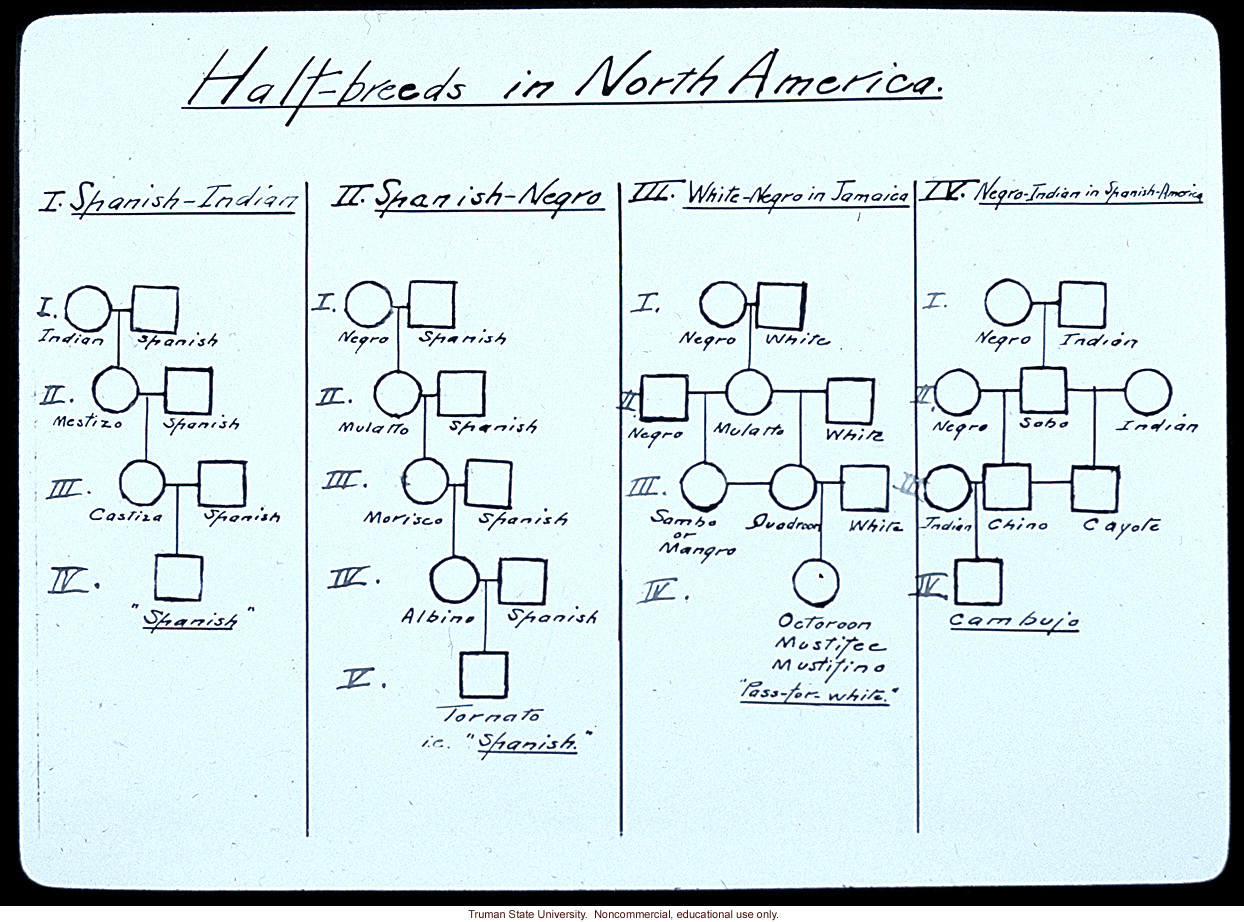 Half-breeds in North America.
I. Spanish-Indian
I.
Indian Spanish
II.
Mestizo Spanish
III.
Castiza Spanish
IV.
"Spanish"
II. Spanish-Negro
I.
Negro Spanish
II.
Mulatto Spanish
III.
Morisco Spanish
IV.
Albino Spanish
V.
Tornato
i.e. "Spanish."
III. White-Negro in Jamaica
I.
Negro White
II.
Negro Mulatto White
III.
Sambo Quadroon White
or
Mangro
IV.
Octoroon
Mustifee
Mustifino
"Pass-for-white."
IV. Negro-Indian in Spanish-America
I.
Negro Indian
II.
Negro Sobo Indian
III.
Indian Chino Cayote
IV.
Cambujo
Truman State University. Noncommercial, educational use only.